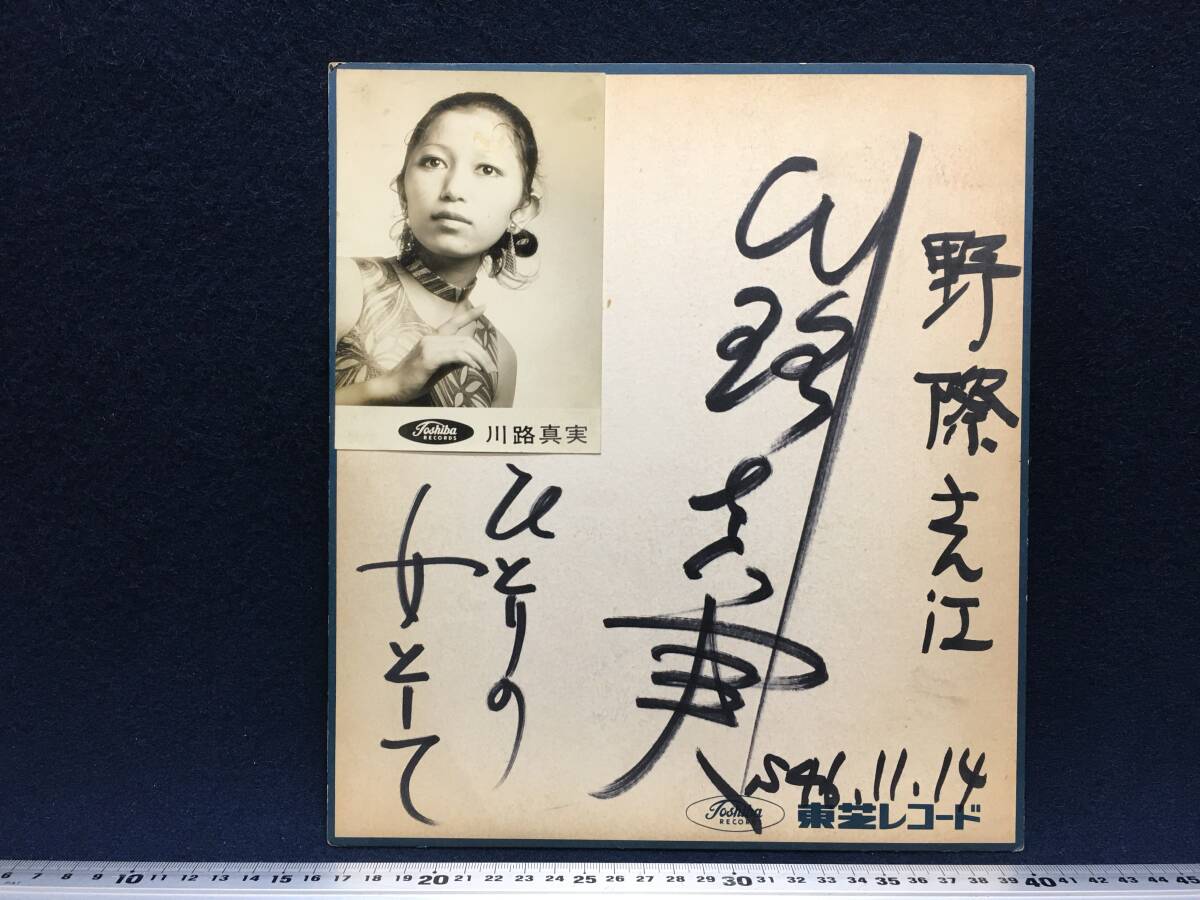 野際さん江
川路真実
ひとりの
女として
S46.11.14
Toshiba
RECORDS
東芝レコード
Toshiba
RECORDS
川路真実
6 7 8 9 10 11 12 13 14 15 16 17 18 19 20 21 22 23 24 25 26 27 28 29 30 31 32 33 34 35 36 37 38 39 40 41 42 43 44 45